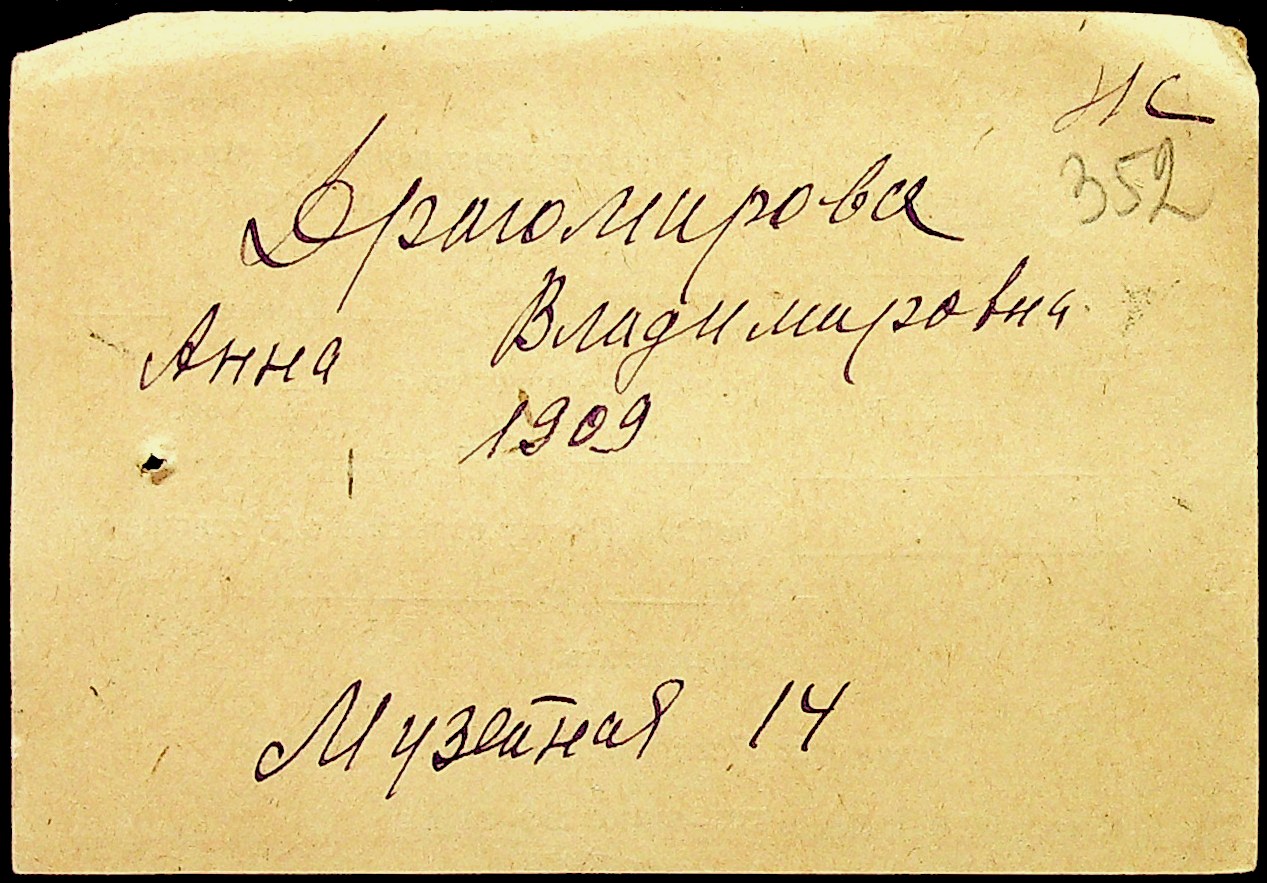 НС
352
Драгомирова
Анна Владимировна
1909
Музейная 14